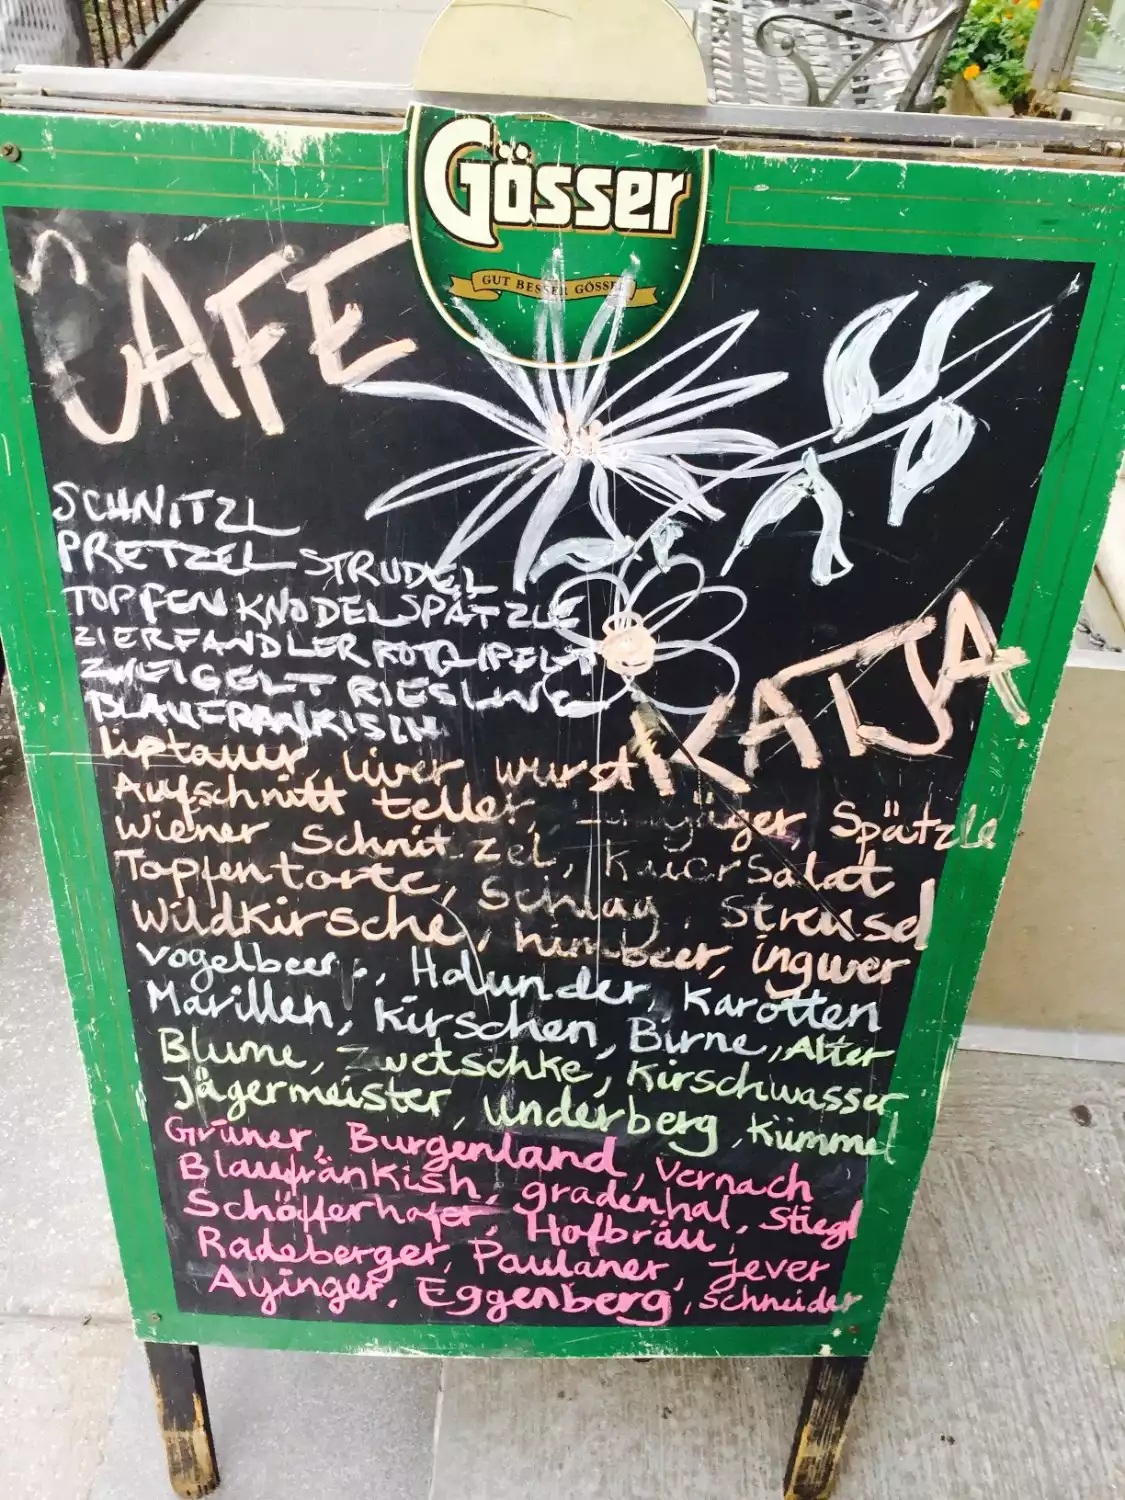 Gösser
GUT BESSER GÖSSER
CAFE
KATJA
SCHNITZL
PRETZEL STRUDEL
TOPFEN KNODEL SPÄTZLE
ZIERFANDLER ROTGIPFLT
ZWEIGELT RIESLING
BLAUFRANKISH
liptauer, liver wurst
Aufschnitt teller, jäger, Spätzle
Wiener Schnitzel, Salat
Topfentorte, Schlag, Streusel
Wildkirsche, himbeer, ingwer
Vogelbeer, Holunder, Karotten
Marillen, Kirschen, Birne, Alter
Blume, Zwetschke, Kirschwasser
Jägermeister, Underberg, Kümmel
Grüner, Burgenland, Vernach
Blaufränkish, gradenhal, Stiegl
Schöfferhofer, Hofbräu,
Radeberger, Paulaner, Jever
Ayinger, Eggenberg, Schneider